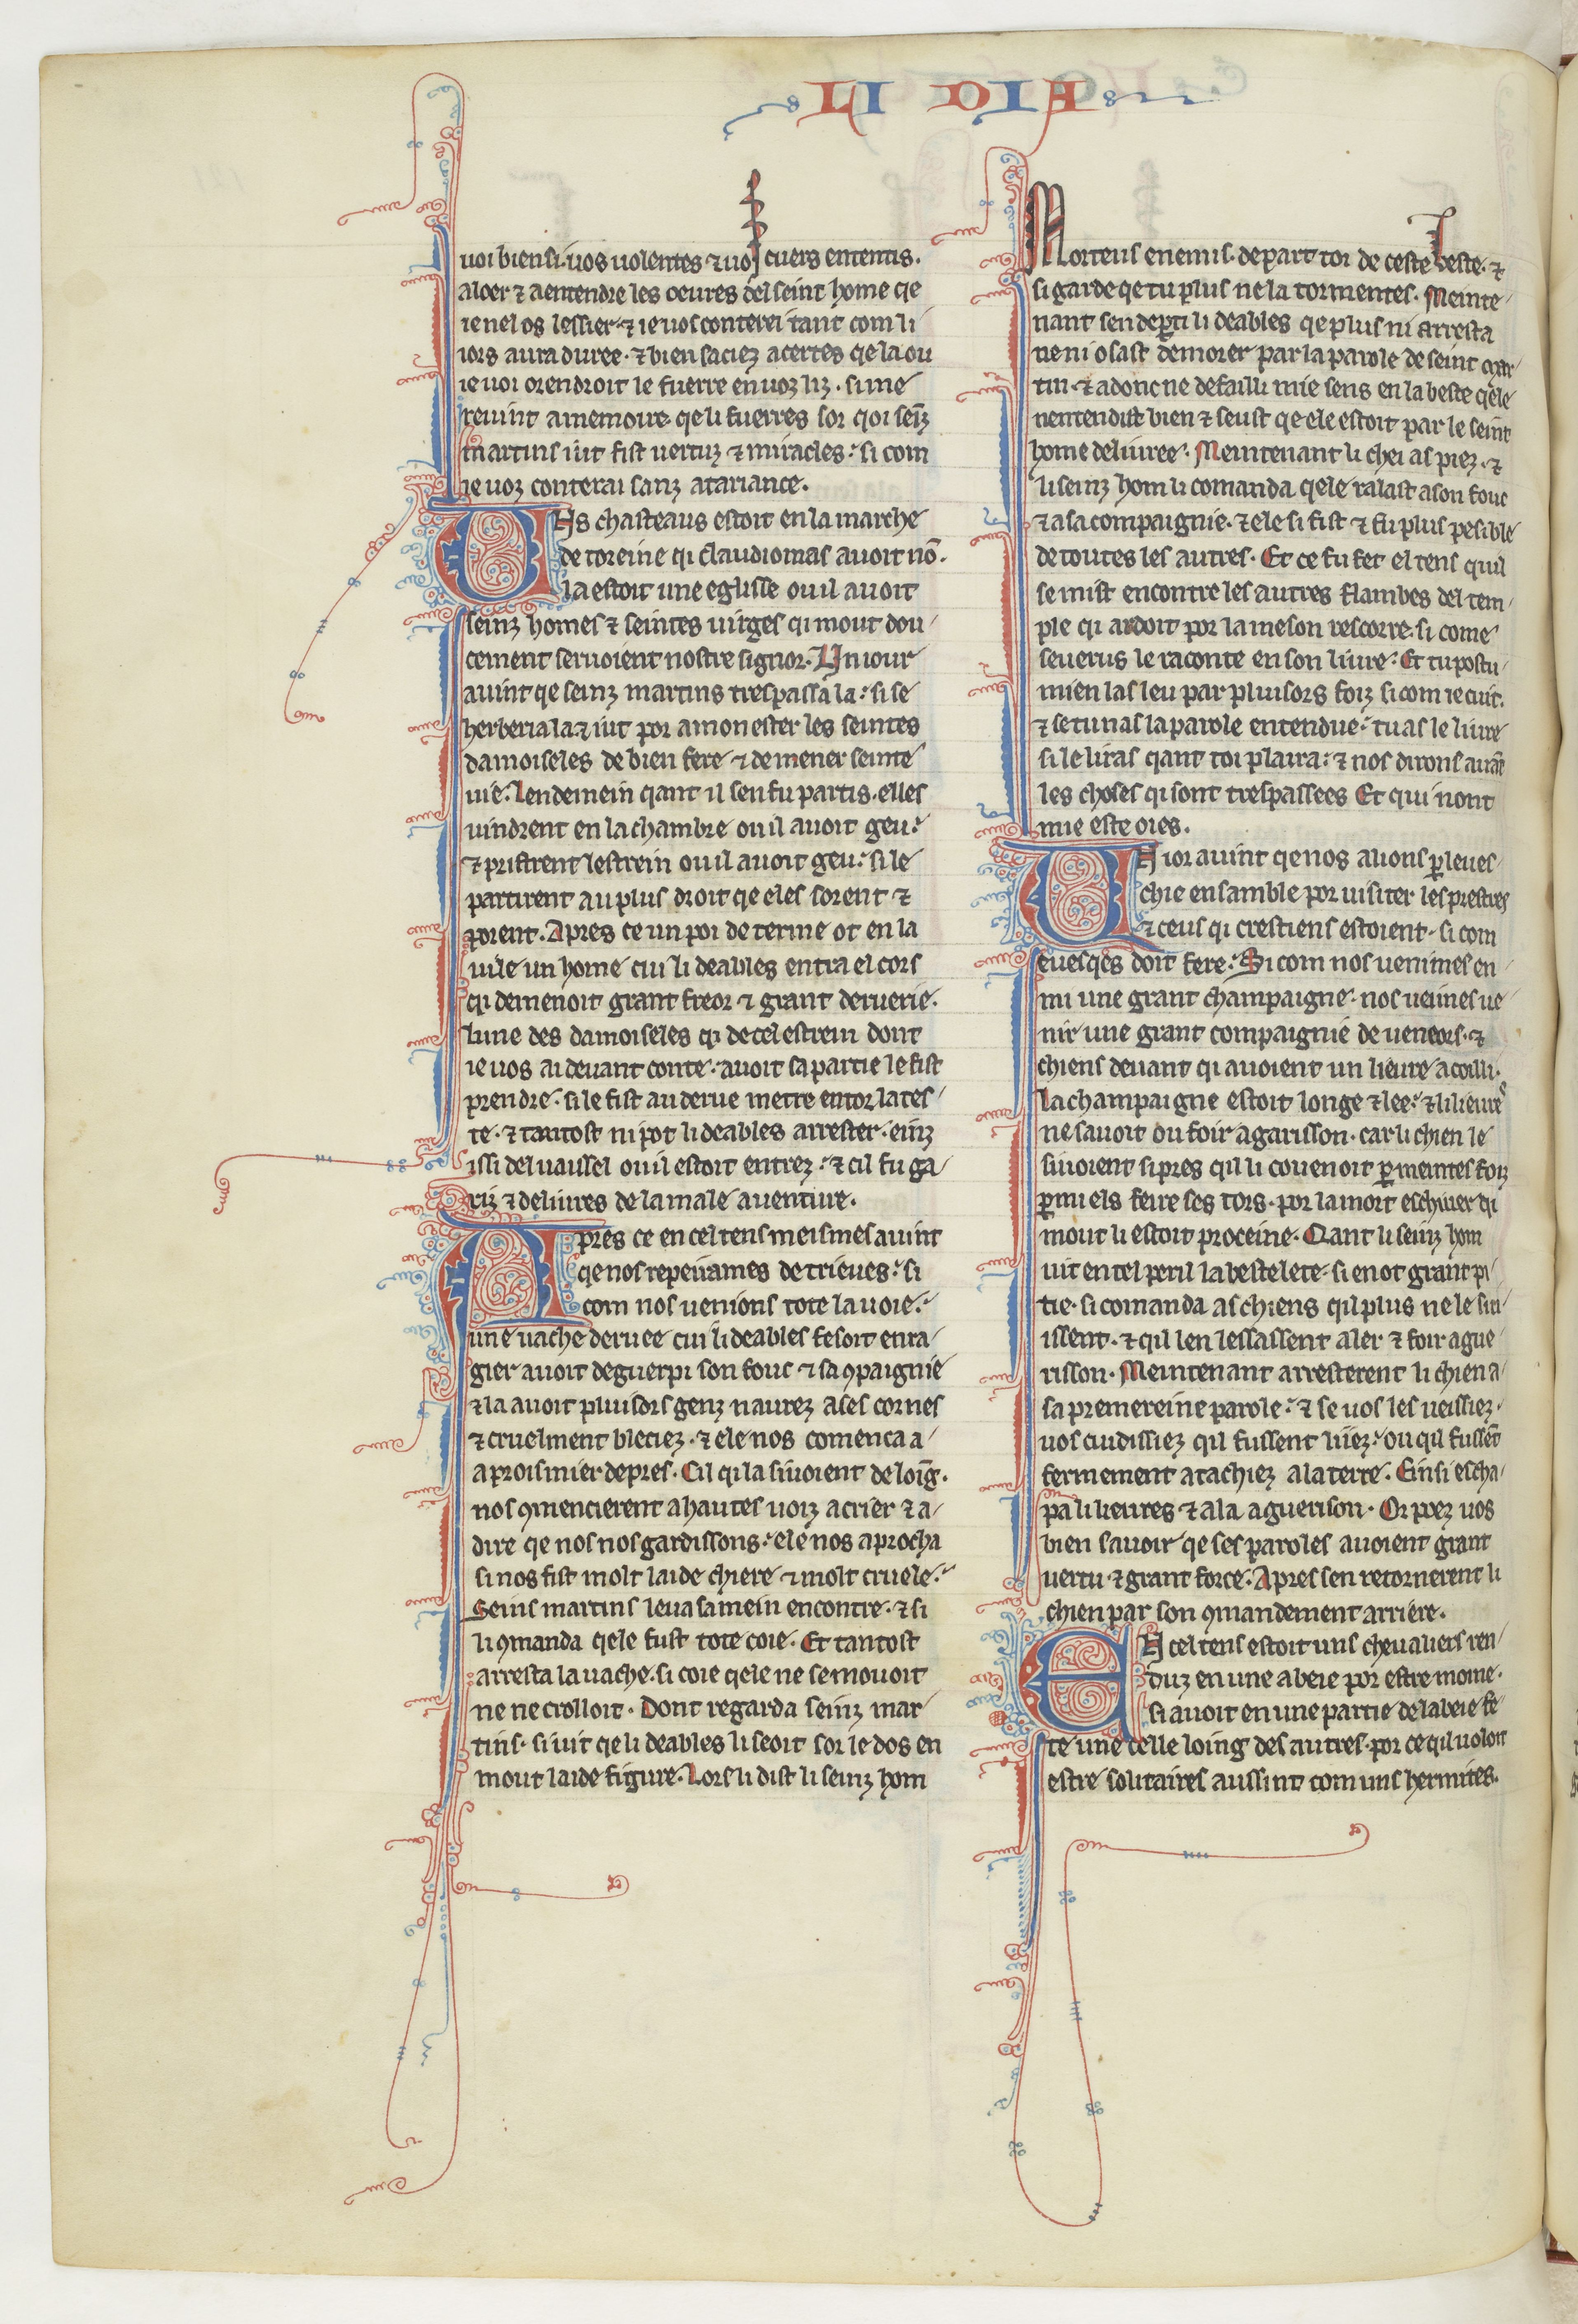 LI DIA
uoi bien si uos uolentes ⁊ uos cuers ententis.
a loer ⁊ a entendre les oeures del seint home qe
ie nel os lessier. ⁊ ie uos conterei tant com li
iors aura duree. ⁊ bien saciez acertes qe la ou
ie uoi orendroit le fuerre en uoz liz. si me
reuint a memoire qe li fuerres sor qoi seīz
martins iut fist uertuz ⁊ miracles. si com
ie uoz conterai sanz atariance.
Uns chasteaus estoit en la marche
de toreine qi claudiomas auoit nō.
la estoit une eglisse ou il auoit
seinz homes ⁊ seintes uirges qi mout dou
cement seruoient nostre signor. Un iour
auint qe seinz martins trespassa la. si se
herberia la ⁊ iut por amonester les seintes
damoiseles de bien fere ⁊ de mener seinte
uie. Lendemein qant il sen fu partis. elles
uindrent en la chambre ou il auoit geu.
⁊ pristrent lestrein ou il auoit geu. si le
partirent au plus droit qe eles sorent ⁊
porent. Apres ce un poi de terme ot en la
uile un home cui li deables entra el cors
qi demenoit grant freor ⁊ grant deruerie.
lune des damoiseles qi de cel estrein dont
ie uos ai deuant conte. auoit sa partie le fist
prendre. si le fist au derue metre entor la tes
te. ⁊ tantost ni pot li deables arrester. einz
issi del uaissel ou il estoit entrez. ⁊ cil fu ga
riz ⁊ deliures de la male auenture.
Apres ce en cel tens meismes auint
qe nos repeirames de trieues. si
com nos uenions tote la uoie.
une uache deruee cui li deables fesoit enra
gier auoit deguerpi son fouc ⁊ sa ꝯpaignie
⁊ la auoit pluisors genz naurez a ses cornes
⁊ cruelment bleciez. ⁊ ele nos comenca a
aproismier de pres. Cil qi la siuoient de loīg.
nos ꝯmencierent a hautes uoiz a crier ⁊ a
dire qe nos nos gardissons. ele nos aprocha
si nos fist molt laide chiere ⁊ molt cruele.
Seins martins leua sa mein encontre. ⁊ si
li ꝯmanda qele fust tote coie. Et tantost
arresta la uache. si coie qele ne se mouoit
ne ne crolloit. Dont regarda seinz mar
tins. si uit qe li deables li seoit sor le dos en
mout laide figure. Lors li dist li seinz hom
Morteus enemis. depart toi de ceste beste. ⁊
si garde qe tu plus ne la tormentes. Meinte
nant sen deꝑti li deables qe plus ni arresta
ne ni osast demorer par la parole de seint mar
tin. ⁊ adonc ne defailli mie sens en la beste qele
nentendist bien ⁊ seust qe ele estoit par le seint
home deliuree. Meintenant li chei as piez. ⁊
li seinz hom li comanda qele ralast a son fouc
⁊ a sa compaignie. ⁊ ele si fist ⁊ fu plus pesible
de toutes les autres. Et ce fu fet el tens qui
se mist encontre les autres flambes del tem
ple qi ardoit por la meson rescorre. si come
seuerus le raconte en son liure. Et tu postu
mien las leu par pluisors foiz si com ie cuit.
⁊ se tu nas la parole entendue. tu as le liure
si le liras qant toi plaira. ⁊ nos dirons auāt
les choses qi sont trespassees Et qui nont
mie este oies.
Un ior auint qe nos alions ꝑ leues
chie ensamble por uisiter les prestres
⁊ ceus qi crestiens estoient. si com
euesqes doit fere. Si com nos uenimes en
mi une grant champaigne. nos ueimes ue
nir une grant compaignie de ueneors. ⁊
chiens deuant qi auoient un lieure acoilli.
la champaigne estoit longe ⁊ lee. ⁊ li lieures
ne sauoit ou foir a garisson. car li chien le
siuoient si pres qil li couenoit ꝑ meintes foiz
ꝑmi els feire ses tors. por la mort eschiuer qi
mout li estoit proceine. Qant li seinz hom
uit en tel peril la bestelete. si en ot grant pi
tie. si comanda as chiens qil plus ne le siu
issent. ⁊ qil len lessassent aler ⁊ foir a gue
risson. Meintenant arresterent li chien a
sa premereine parole. ⁊ se uos les ueissiez.
uos cuidissiez qil fussent liiez. ou qil fussēt
fermement atachiez a la terre. Einsi escha
pa li lieures ⁊ ala a guerison. Or poez uos
bien sauoir qe ses paroles auoient grant
uertu ⁊ grant force. Apres sen retornerent li
chien par son ꝯmandement arriere.
En cel tens estoit uns cheualiers ren
duz en une abeie por estre moine.
si auoit en une partie de labeie fe
te une celle loing des autres. por ce qil uoloit
estre solitaires aussint com uns hermites.